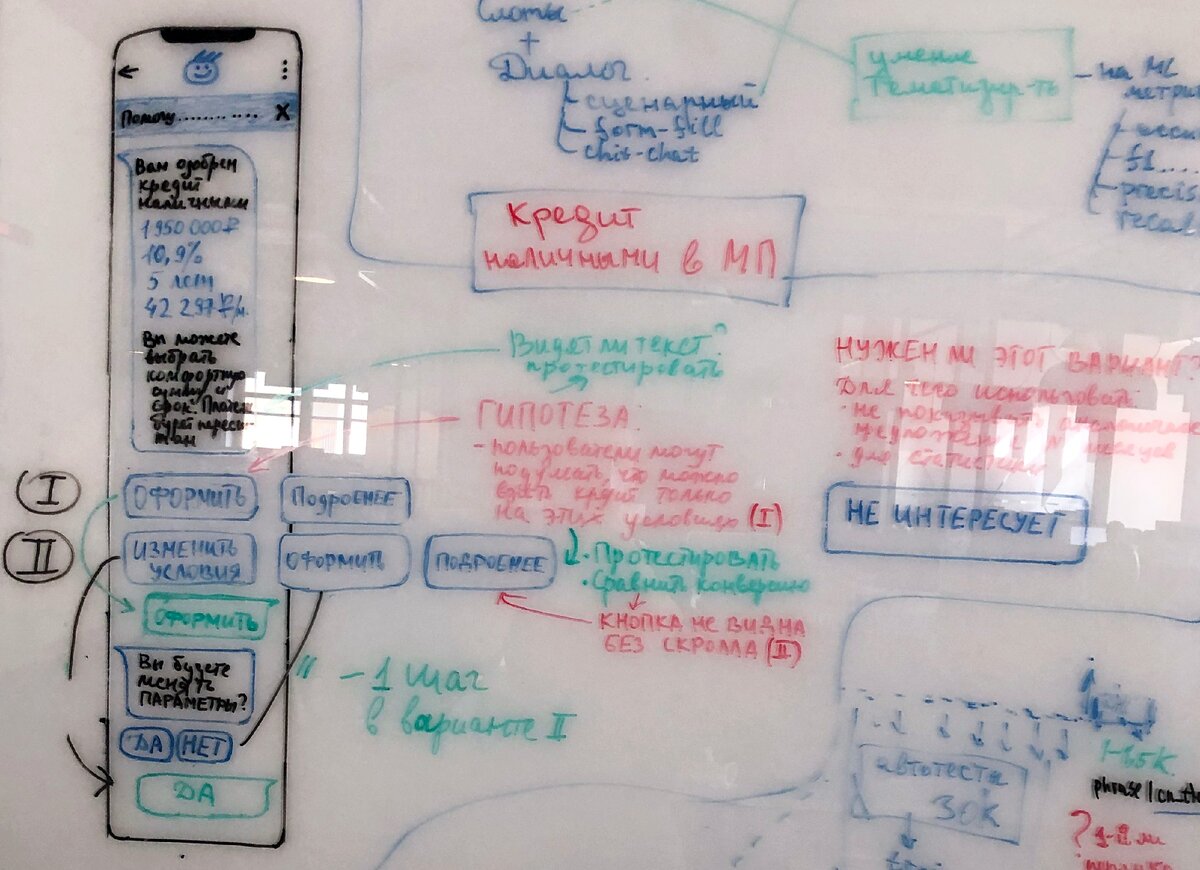 Слоты
+
Диалог.
сценарный
form-fill
chit-chat
умение
Тематизир-ть
на ML
метри
f1....
precis
recal
Кредит
наличными в МП
Помогу...........
X
Вам одобрен
кредит
наличными
1 950 000 ₽
10,9%
5 лет
42 297 ₽/м.
Вы можете
выбрать
комфортную
сумму и
срок. Платеж
будет пересчи-
тан
Видят ли текст?
протестировать
ГИПОТЕЗА:
- пользователи могут
подумать, что можно
взять кредит только
на этих условиях (I)
НУЖЕН ЛИ ЭТОТ ВАРИАНТ?
Для чего использовать:
• не показывать
• для статистики
НЕ ИНТЕРЕСУЕТ
I
ОФОРМИТЬ
Подробнее
II
ИЗМЕНИТЬ
УСЛОВИЯ
ОФОРМИТЬ
ПОДРОБНЕЕ
• Протестировать
• Сравнить конверсию
КНОПКА НЕ ВИДНА
БЕЗ СКРОЛЛА (II)
ОФОРМИТЬ
Вы будете
менять
ПАРАМЕТРЫ?
ДА
НЕТ
ДА
- 1 шаг
в варианте II
автотесты
30К
phrase |
?